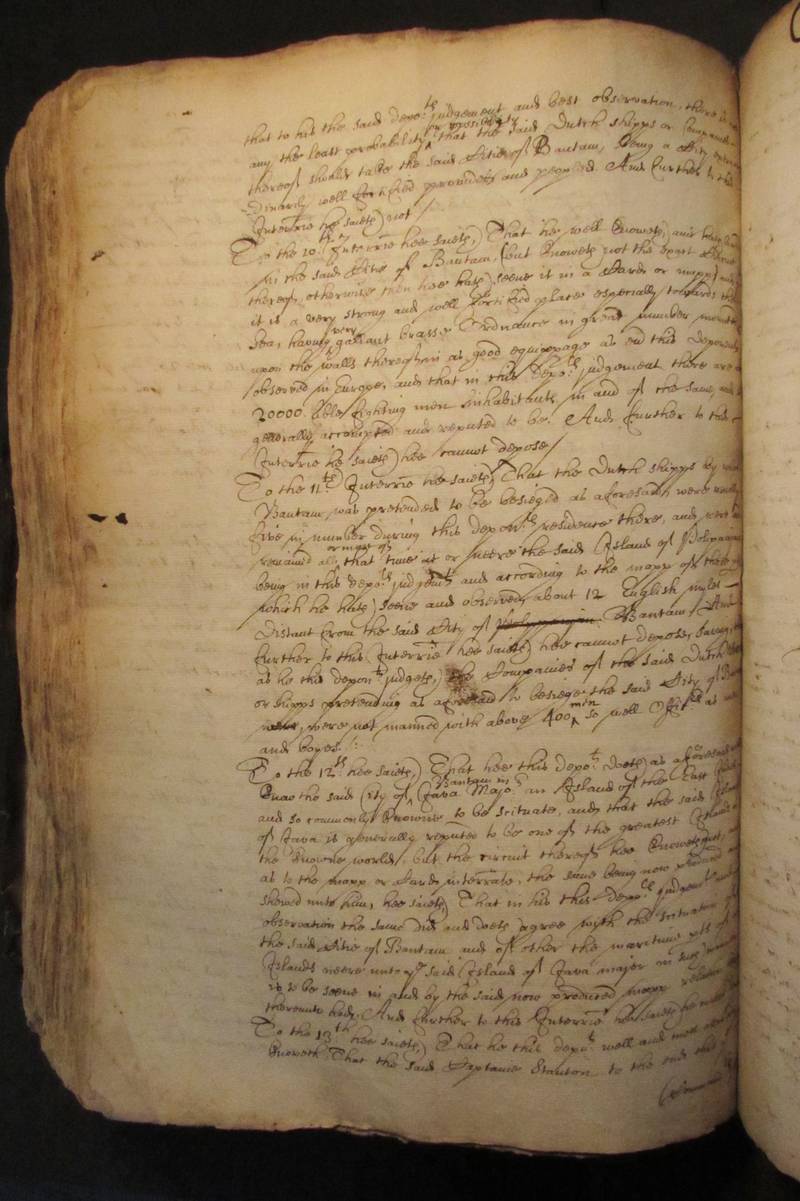 that to his the said depo:ts judgement and best observation, there is
any the least probability or possibility that the said Dutch shipps or Companies
thereof should take the said Citie of Bantam, being a City extraor
dinarily well fortifyed provided and peopled. And further to this
Interrie hee saieth not /
To the 10:th Interrie hee saieth, That hee well knoweth,
in the said Citie of Bantam, (but knoweth not the exact
thereof, otherwise then hee hath seene it in a Carde or mapp) and
it is a very strong and well fortifyed place especially towards the
Sea, having very gallant brasse Ordnance in great number mounted
upon the walls thereof in as good equippage as ever this deponent
observed in Europe, and that in this depo:ts judgement there are
20000. able fighting men Inhabitants in and of the same, and
generally accompted and reputed to be. And further to this
Interrie he saieth hee cannot depose /
To the 11:th Interrie hee saieth, That the Dutch shipps by
Bantam was pretended to be besieged as aforesaid were
five in number during this depon:ts residence there, and were
remained all or most of that time at or neere the said Island of
being in this depo:ts judgem:t and according to the mapp of the
which he hath seene and observed, about 12 English myles
distant from the said City of Bantam And
further to this Interrie hee saieth hee cannot depose, saving
as he this depon:t judgeth, the Companies of the said Dutch
or shipps pretending as aforesaid to besiege the said City of
were not manned with above 400 men so well Officers as
and boyes. /:
To the 12:th hee saieth, That hee this depo:t doeth as aforesaid
knoe the said City of Bantam in Java Major an Island of the East
and so commonly knowne to be scituate, and that the said
of Java is generally reputed to be one of the greatest
the knowne world, but the circuit thereof hee knoweth not,
as to the mapp or Carde interrate, the same being now produced
shewed unto him, hee saieth, That in his this depo:ts judgem:t
observation the same did and doeth agree with the scituation
the said Citie of Bantam and of other the maritime pts of
Islands neere unto ye said Island of Java major in such
is to be seene in and by the said now produced mapp relation
thereunto had. And further to this Interrie hee saieth he
To the 13:th hee saieth, That he this depo:t well and
knoweth That the said Captaine Stanton to the end